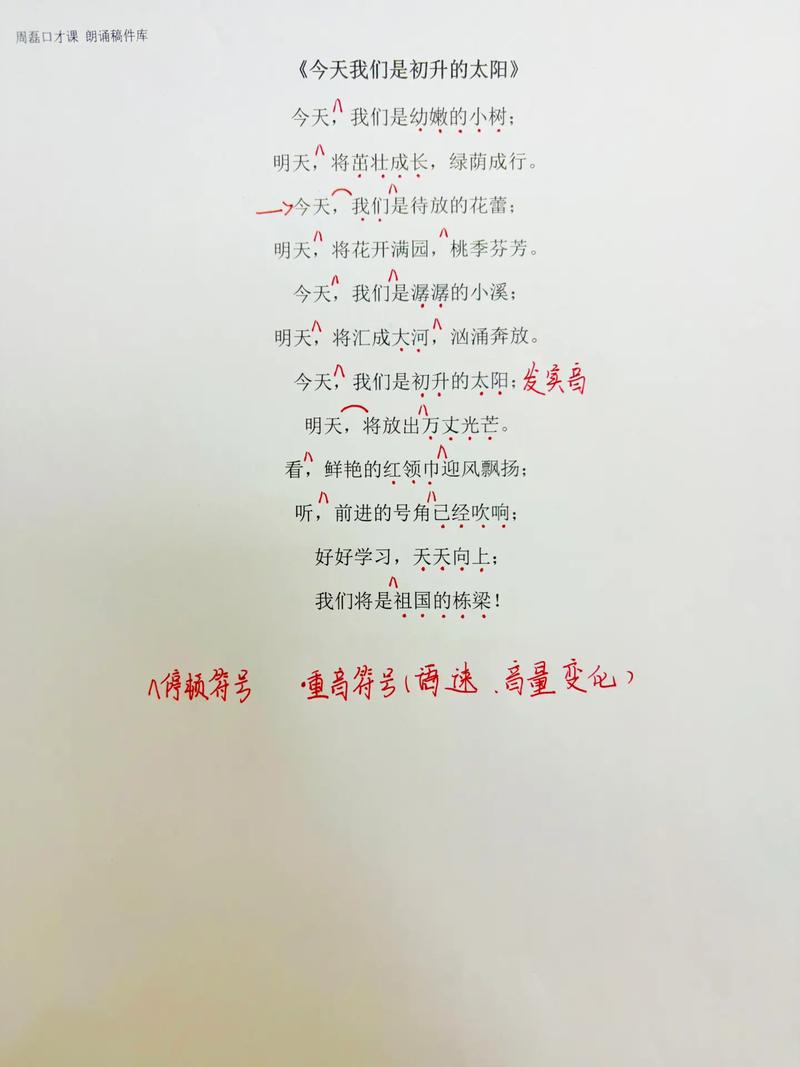 周磊口才课 朗诵稿件库
《今天我们是初升的太阳》
今天，我们是幼嫩的小树；
明天，将茁壮成长，绿荫成行。
今天，我们是待放的花蕾；
明天，将花开满园，桃季芬芳。
今天，我们是潺潺的小溪；
明天，将汇成大河，汹涌奔放。
今天，我们是初升的太阳；发实音
明天，将放出万丈光芒。
看，鲜艳的红领巾迎风飘扬；
听，前进的号角已经吹响；
好好学习，天天向上；
我们将是祖国的栋梁！
∧停顿符号 ·重音符号（语速、音量变化）